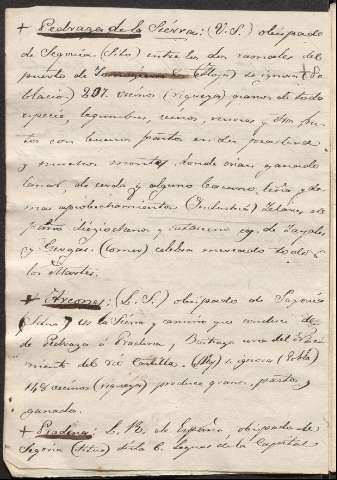 + Pedraza de la Sierra: (V. S.) obispado
de Segovia (Sito) entre los dos ramales del
puerto de (Alt.) se ignora (Po
blacion) 807. vecinos (riqueza) granos de todo
especie, legumbres, vinos, y
tos con buenos pastos en sus praderas
y muchos montes, donde crian ganado
lanar, de cerda y alguno bacuno, leña y de
mas aprobechamientos (Industria) Telares de
paños dieziochenos y
y (comer) celebra mercado todos
los Martes.
+ Arcones: (L. S.) obispado de Segovia
(Sito) en la Sierra y camino que conduce
de Pedraza á Pradena, y Buitrago cerca del naci
miento del rio (Alt) s. ignora (Pobl.)
148 vecinos (riqueza) produce granos, pastos y
ganado.
+ Pradena: L. R. de obispado de
Segovia (Sitio) dista 6. leguas de la Capital